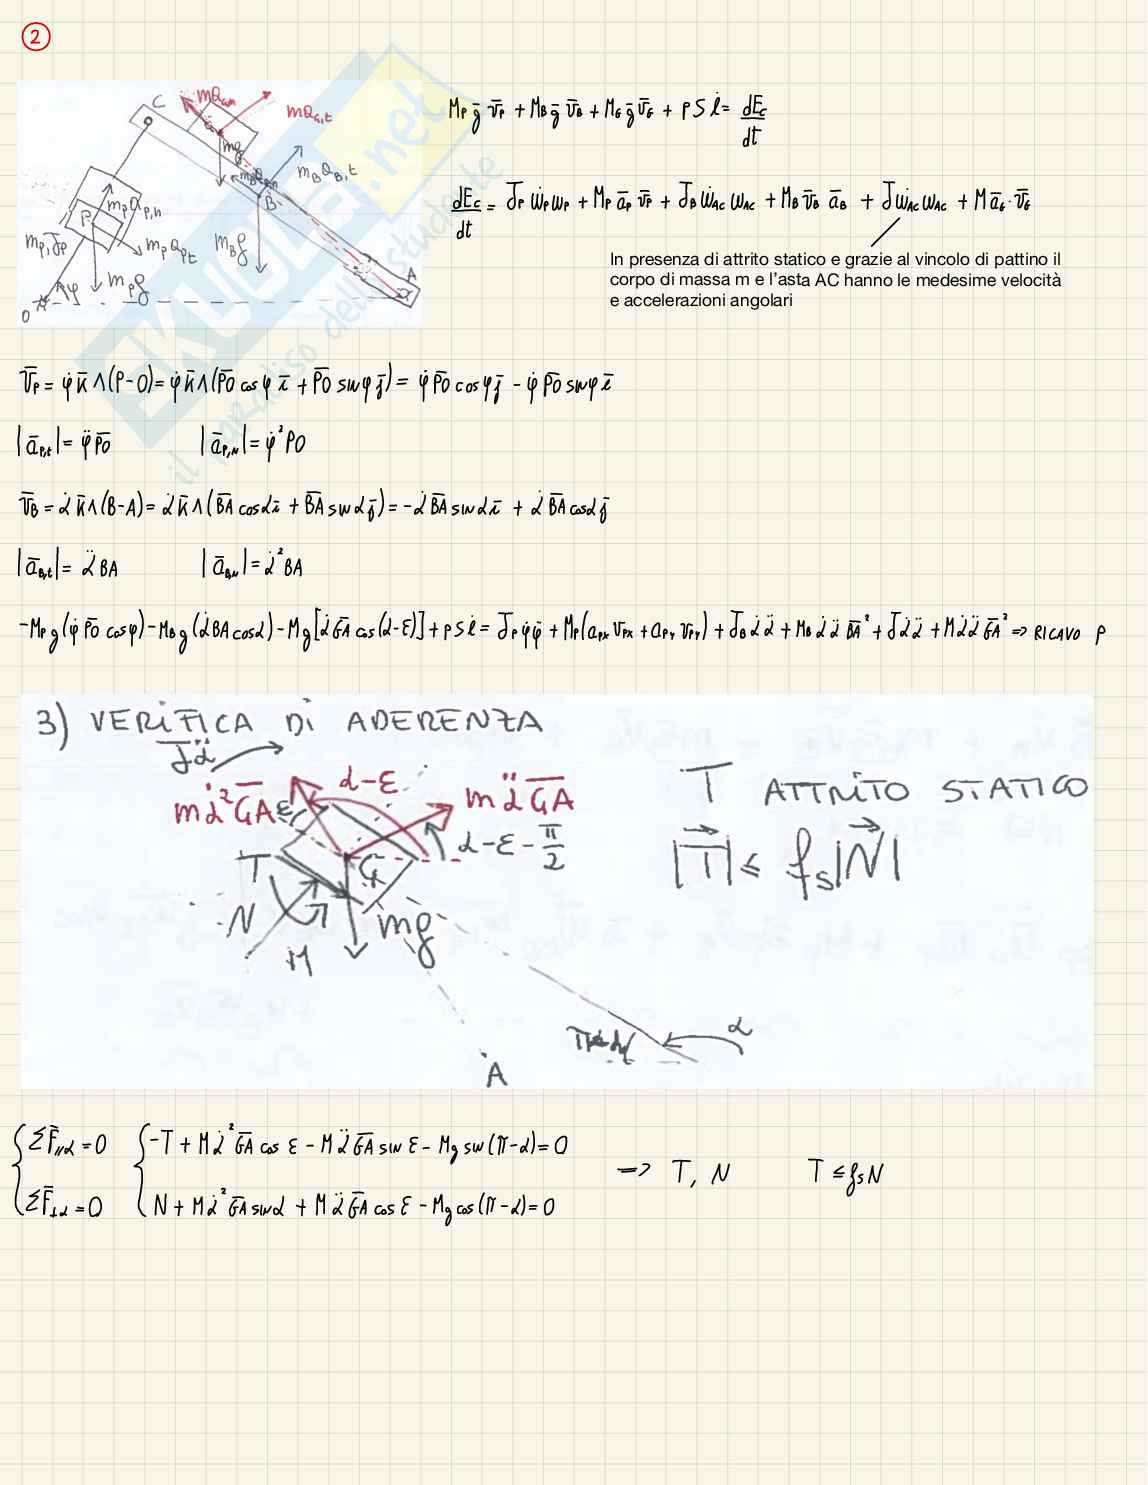 2
C
m a_{G,n}
m a_{G,t}
G
mg
m_B a_{B,n}
m_B a_{B,t}
B
m_P a_{P,n}
P
m_P, J_P
m_P a_{P,t}
m_B g
m_P g
φ
O
A
α
SKUOLA.net
il paradiso dello studente
M_P ḡ v̄_P + M_B ḡ v̄_B + M_G ḡ v̄_G + p S l̇ = dE_c/dt
dE_c/dt = J_P ω̇_P ω_P + M_P ā_P v̄_P + J_B ω̇_AC ω_AC + M_B v̄_B ā_B + J ω̇_AC ω_AC + M ā_G · v̄_G
In presenza di attrito statico e grazie al vincolo di pattino il
corpo di massa m e l'asta AC hanno le medesime velocità
e accelerazioni angolari
v̄_P = φ̇ k̄ ∧ (P-O) = φ̇ k̄ ∧ (P̅O̅ cos φ ī + P̅O̅ sin φ j̄) = φ̇ P̅O̅ cos φ j̄ - φ̇ P̅O̅ sin φ ī
|ā_{P,t}| = φ̈ P̅O̅ |ā_{P,N}| = φ̇² PO
v̄_B = α̇ k̄ ∧ (B-A) = α̇ k̄ ∧ (B̅A̅ cos α ī + B̅A̅ sin α j̄) = -α̇ B̅A̅ sin α ī + α̇ B̅A̅ cos α j̄
|ā_{B,t}| = α̈ BA |ā_{B,N}| = α̇² BA
-M_P g (φ̇ P̅O̅ cos φ) - M_B g (α̇ BA cos α) - M g [α̇ G̅A̅ cos (α-ε)] + p S l̇ = J_P φ̇ φ̈ + M_P (a_{Px} v_{Px} + a_{Py} v_{Py}) + J_B α̇ α̈ + M_B α̇ α̈ B̅A̅² + J α̇ α̈ + M α̇ α̈ G̅A̅² => RICAVO P
3) VERIFICA DI ADERENZA
J α̈
α-ε
m α̇² G̅A̅
ε
m α̈ G̅A̅
α-ε-π/2
T
G
N
mg
M
α
A
T ATTRITO STATICO
|T⃗| ≤ f_s |N⃗|
ΣF̄_{//α} = 0 -T + M α̇² G̅A̅ cos ε - M α̈ G̅A̅ sin ε - Mg sin (π-α) = 0
-> T, N T ≤ f_s N
ΣF̄_{⊥α} = 0 N + M α̇² G̅A̅ sin α + M α̈ G̅A̅ cos ε - Mg cos (π-α) = 0